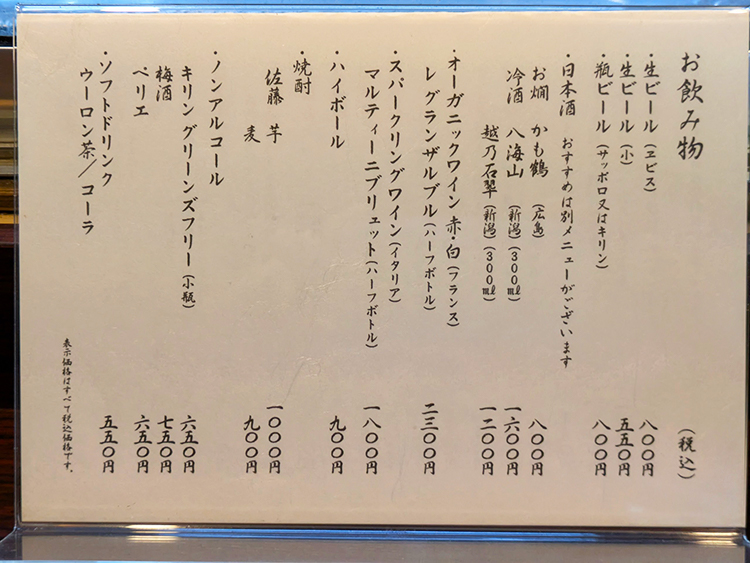 お飲み物 (税込)
・生ビール (ヱビス) 八〇〇円
・生ビール (小) 五五〇円
・瓶ビール (サッポロ又はキリン) 八〇〇円
・日本酒 おすすめは別メニューがございます
お燗 かも鶴 (広島) 八〇〇円
冷酒 八海山 (新潟)(300㎖) 一六〇〇円
越乃石翠 (新潟)(300㎖) 一二〇〇円
・オーガニックワイン 赤・白 (フランス)
レ グランザルブル (ハーフボトル) 二三〇〇円
・スパークリングワイン (イタリア)
マルティーニブリュット (ハーフボトル) 一八〇〇円
・ハイボール 九〇〇円
・焼酎
佐藤 芋 一〇〇〇円
麦 九〇〇円
・ノンアルコール
キリン グリーンズフリー (小瓶) 六五〇円
梅酒 七五〇円
ペリエ 六五〇円
・ソフトドリンク
ウーロン茶/コーラ 五五〇円
表示価格はすべて税込価格です。